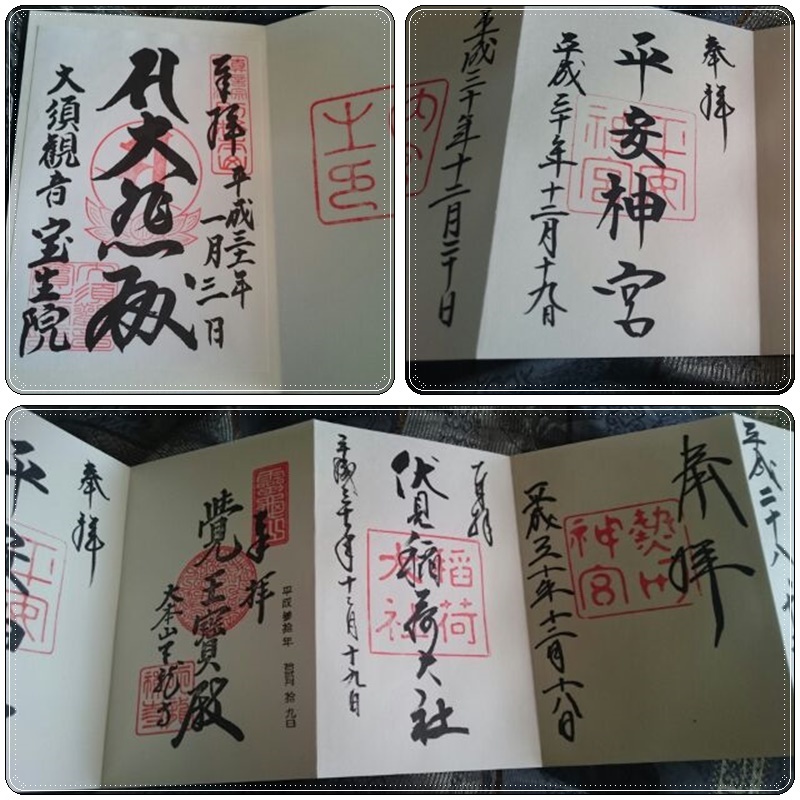 奉拝
平成三十一年
一月三日
大悲殿
大須観音
宝生院
奉拝
平安神宮
平成三十年十二月十九日
平安
神宮
平成三十年十二月二十日
平成二十八
奉拝
熱田
神宮
平成三十年十二月十八日
奉拝
伏見稲荷大社
稲荷
大社
平成三十年十二月十九日
奉拝
平成参拾年 拾弐月 拾九日
覺王寶殿
大本山天龍寺
奉拝
平安